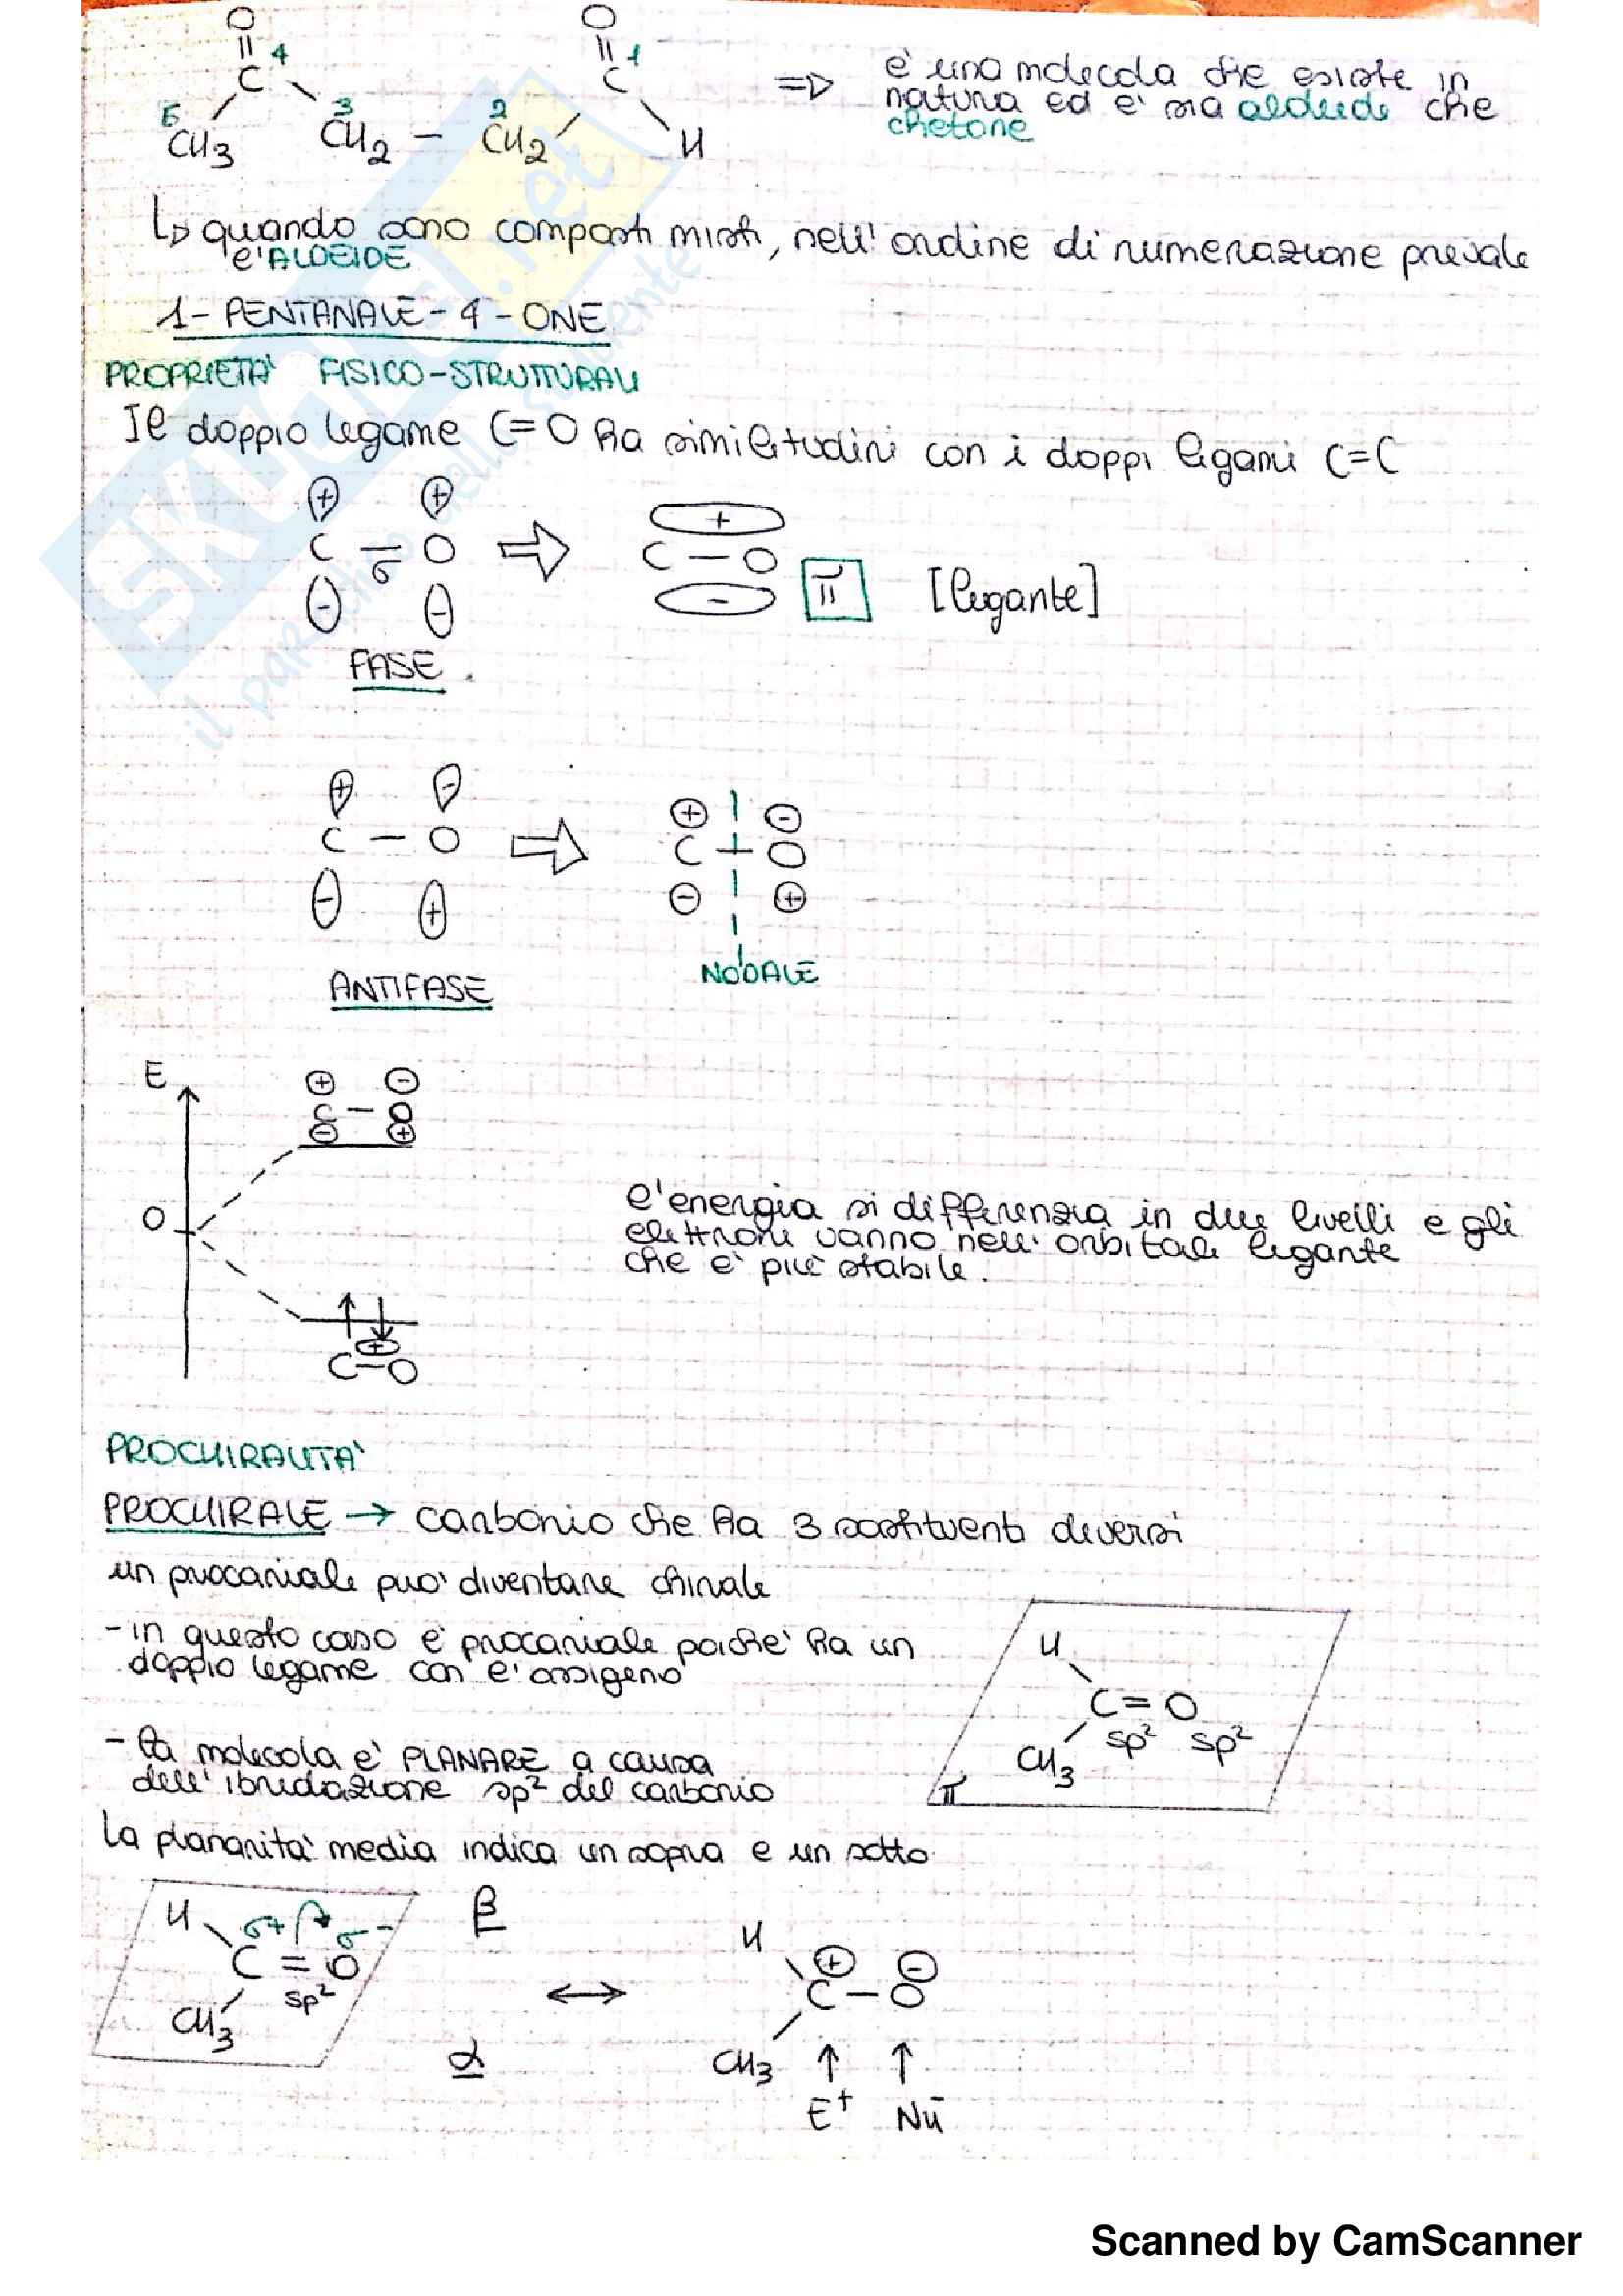 O O
|| 4 || 1
C C
5 3 2
CH3 CH2 — CH2 H
=> è una molecola che esiste in
natura ed è sia aldeide che
chetone
↳ quando sono composti misti, nell'ordine di numerazione prevale
l'ALDEIDE
1-PENTANALE-4-ONE
PROPRIETÀ FISICO-STRUTTURALI
Il doppio legame C=O ha similitudini con i doppi legami C=C
+ + +
C — O ⇒ C — O
σ
- - - π [legante]
FASE
+ - + -
C — O ⇒ C — O
- + - +
ANTIFASE NODALE
E
+ -
C — O
- +
O
l'energia si differenzia in due livelli e gli
elettroni vanno nell'orbitale legante
che è più stabile.
↑ ↓
+
C—O
PROCHIRALITÀ
PROCHIRALE → carbonio che ha 3 sostituenti diversi
un procariale può diventare chirale
- in questo caso è procariale poiché ha un
doppio legame con l'ossigeno
H
C = O
CH3 sp² sp²
π
- la molecola è PLANARE a causa
dell'ibridazione sp² del carbonio
La planarità media indica un sopra e un sotto
H σ+ σ- β
C = O
sp²
CH3 α
↔
H + -
C — O
CH3 ↑ ↑
E+ Nu-
Scanned by CamScanner
SKUOLA.net
il paradiso dello studente